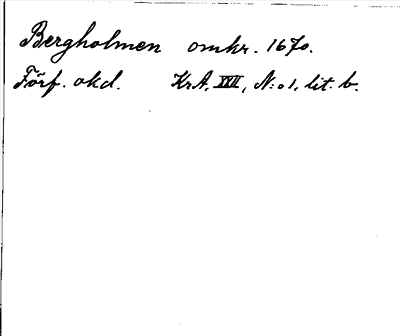 Bergholmen omkr. 1670.
Förf. okd. KrA, XVI, N:o 1, lit. b.